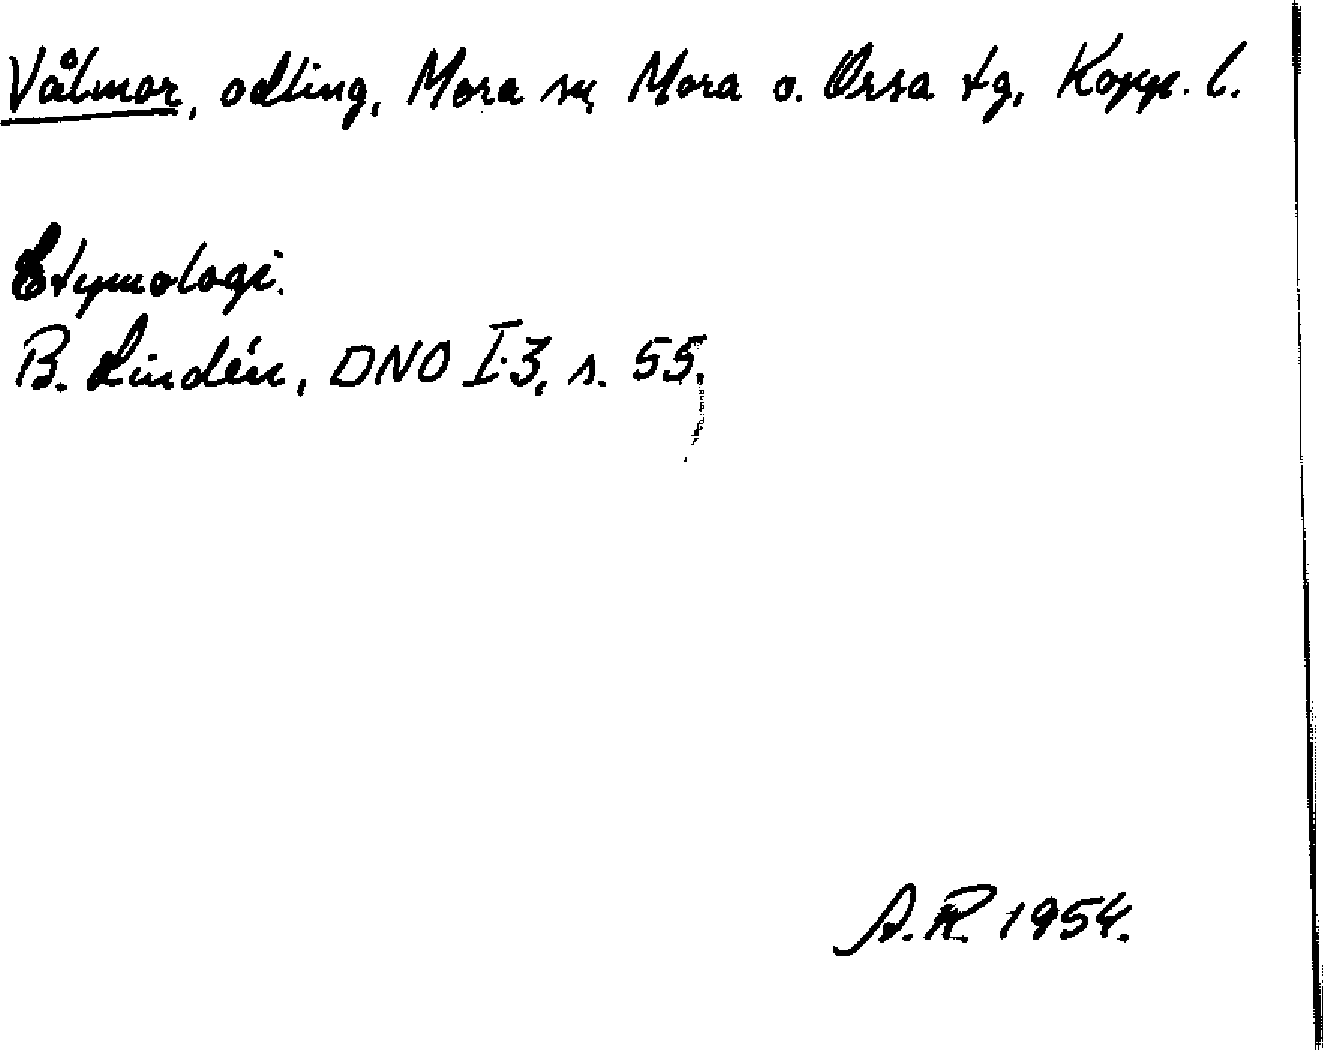 Våtmor, odling, Mora sn, Mora o. Orsa tg, Kopp. l.
Etymologi.
B. Lindén, DNO I:3, s. 55.
A.R. 1954.